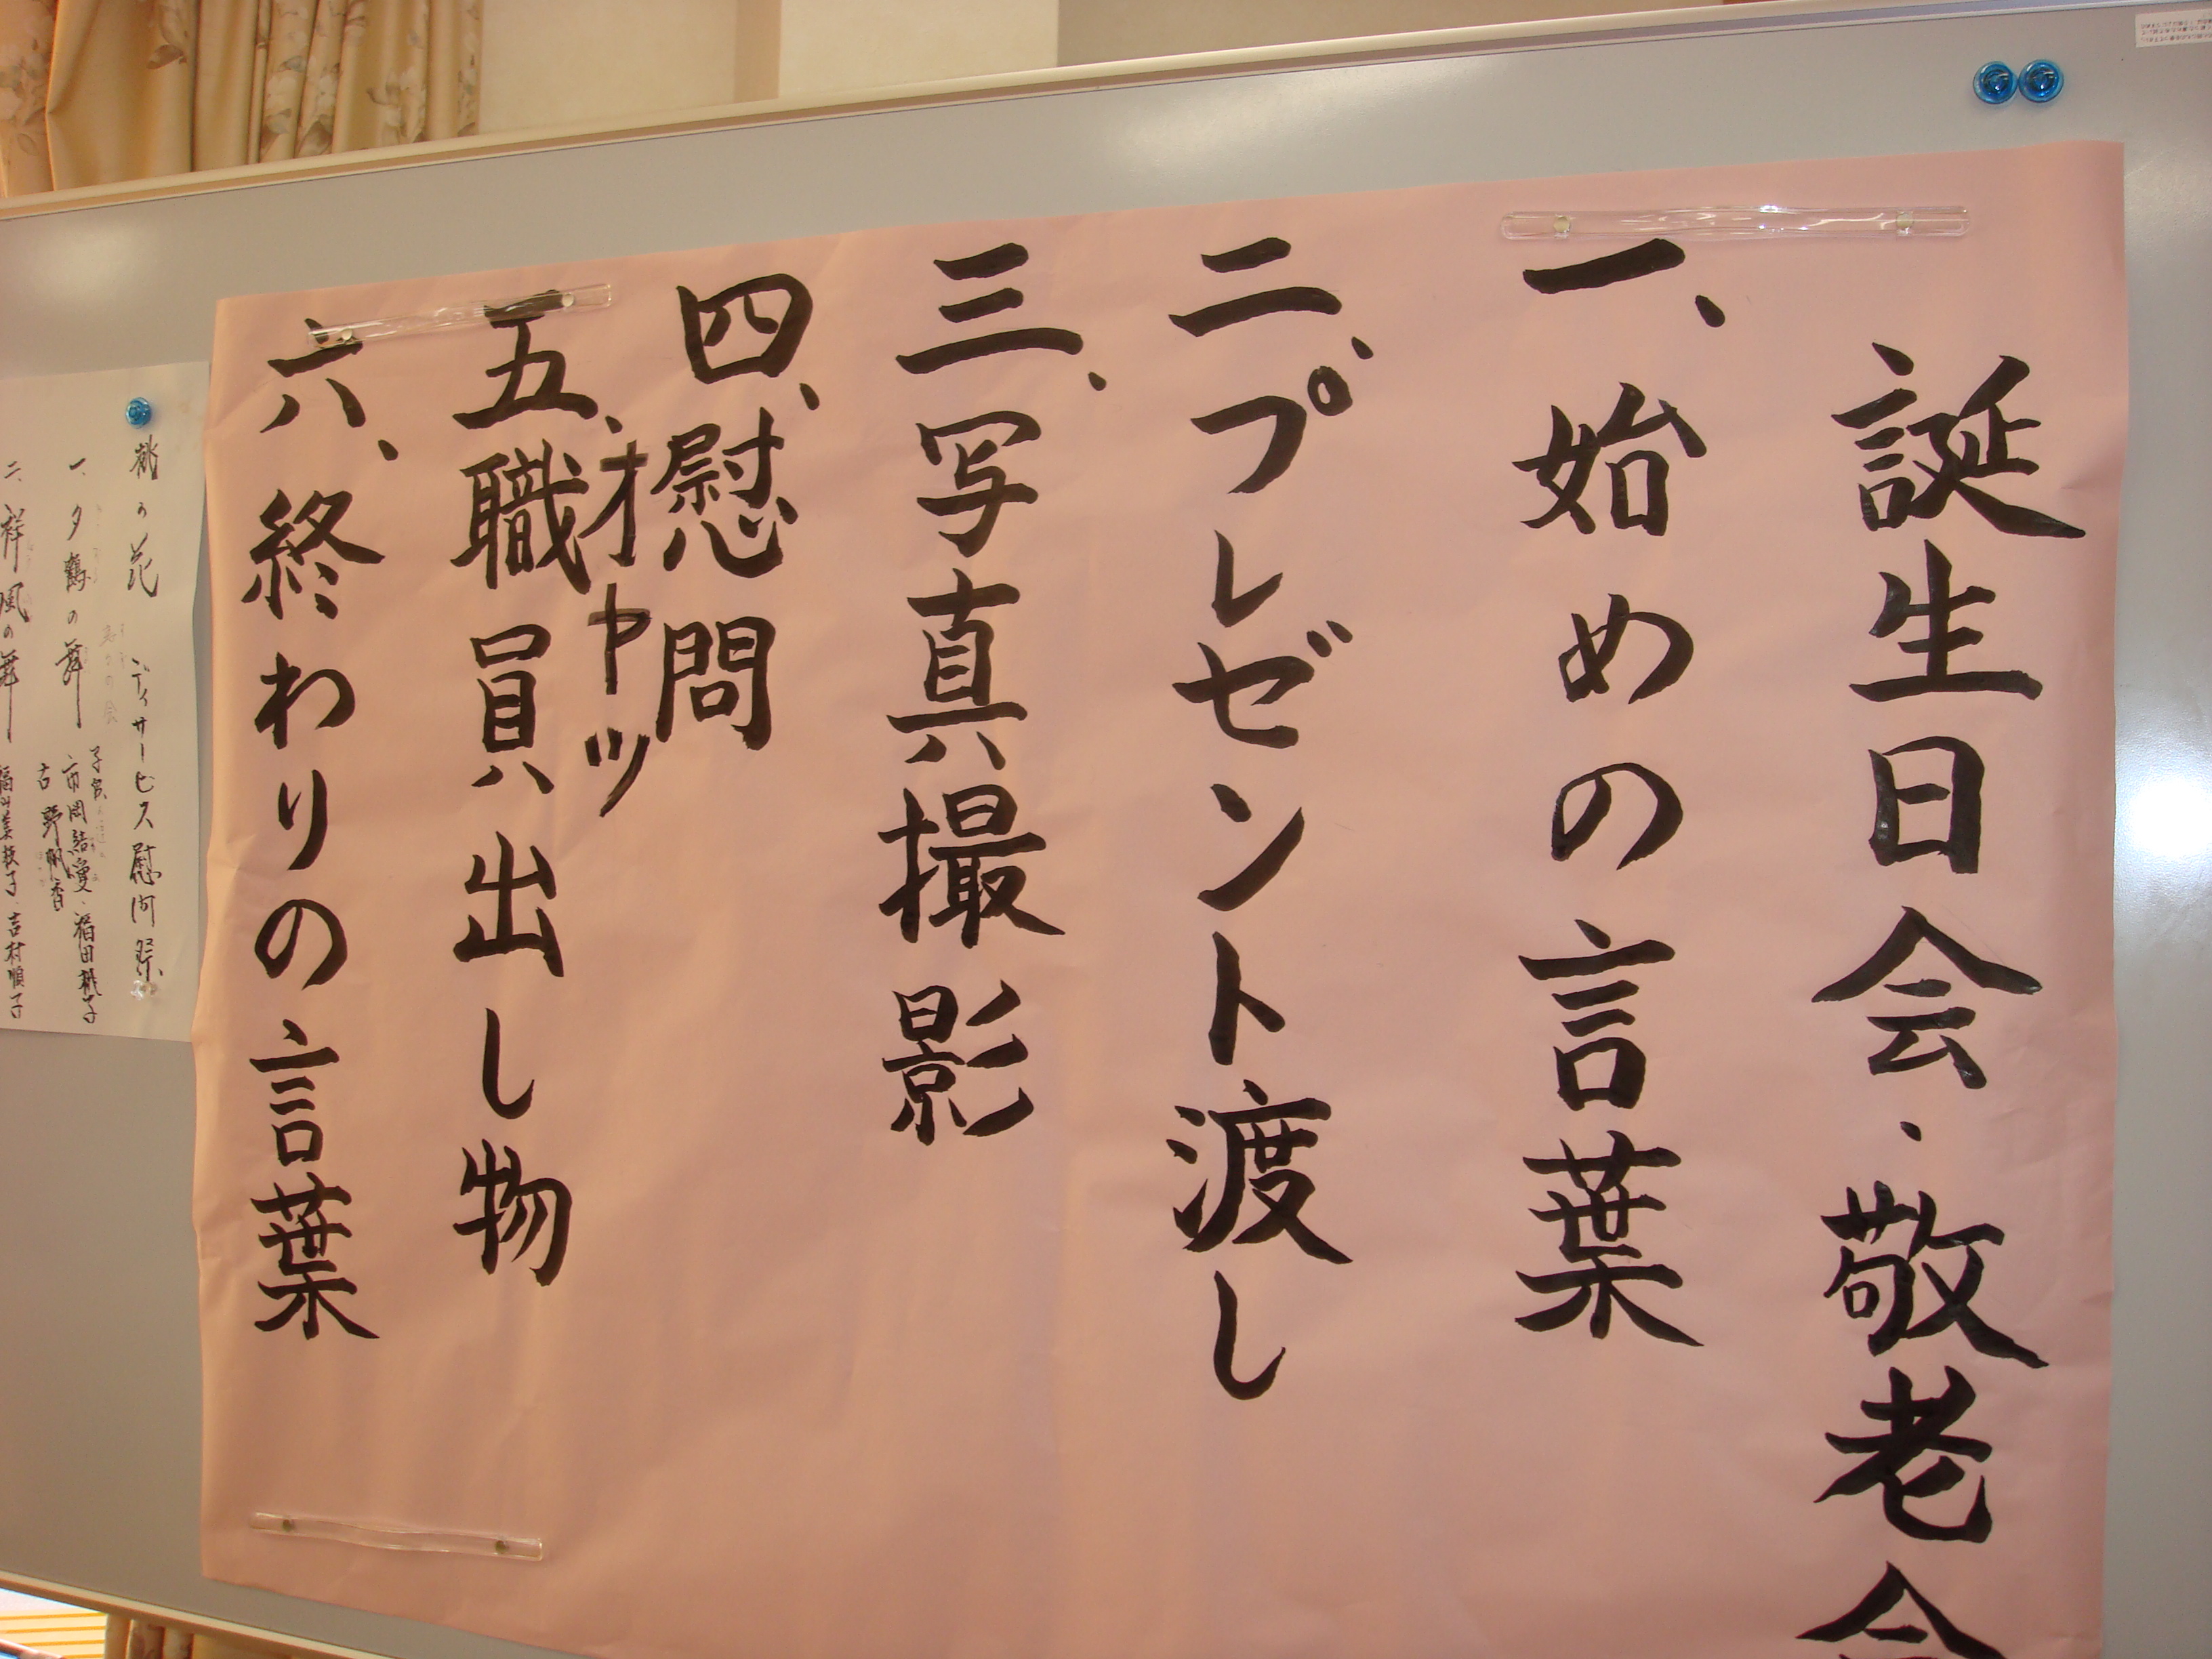 誕生日会・敬老会
一、始めの言葉
二、プレゼント渡し
三、写真撮影
四、慰問
オヤツ
五、職員出し物
六、終わりの言葉
桃の花 デイサービス慰問祭
一、夕鶴の舞
市岡結愛・福田桃子
古野帆香
二、祥風の舞
吉村順子